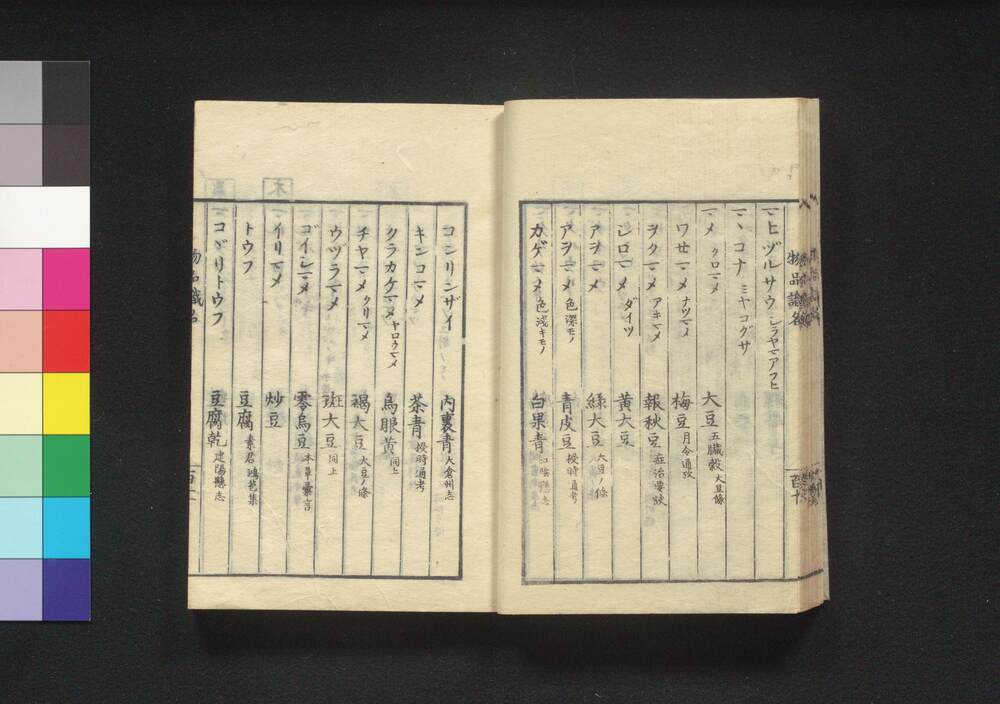 マヒヅルサウ シラヤマアフヒ
マヽコナ ミヤコグサ
マメ クロマメ 大豆 五臓穀 大豆條
ワセマメ ナツマメ 梅豆 月令通攷
ヲクマメ アキマメ 報秋豆 症治要訣
シロマメ ダイツ 黄大豆
アヲマメ 緑大豆 大豆ノ條
アヲマメ 色深キモノ 青皮豆 授時通考
カゲマメ 色浅キモノ 白果青
物品識名
コンリンザイ 内裏青 太倉州志
キンコマメ 茶青 授時通考
クラカケマメ ヤロウマメ 烏眼黄 同上
チヤマメ クリマメ 褐大豆 大豆ノ條
ウヅラマメ 斑大豆 同上
ゴイシマメ 零烏豆 本草彙言
イリマメ 炒豆
トウフ 豆腐 素君鴻苞集
コヾリトウフ 豆腐乾 建陽縣志
物品識名